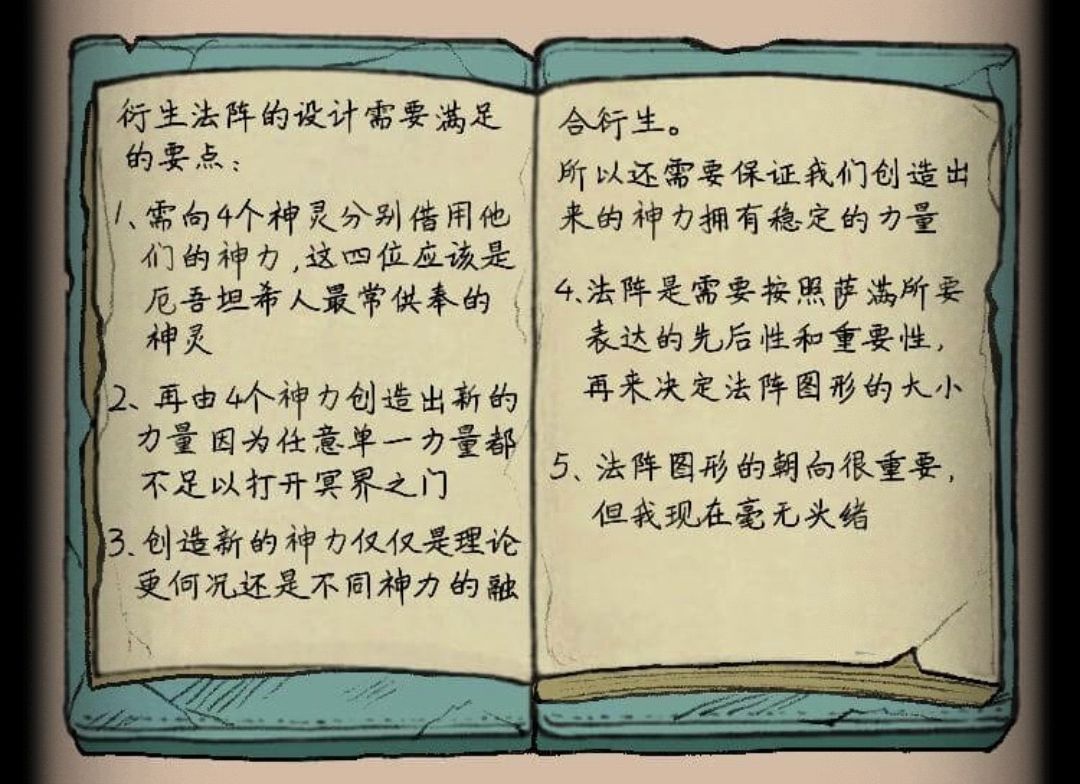 衍生法阵的设计需要满足
的要点：
1、需向4个神灵分别借用他
们的神力，这四位应该是
厄吾坦希人最常供奉的
神灵
2、再由4个神力创造出新的
力量因为任意单一力量都
不足以打开冥界之门
3、创造新的神力仅仅是理论
更何况还是不同神力的融
合衍生。
所以还需要保证我们创造出
来的神力拥有稳定的力量
4、法阵是需要按照萨满所要
表达的先后性和重要性，
再来决定法阵图形的大小
5、法阵图形的朝向很重要，
但我现在毫无头绪